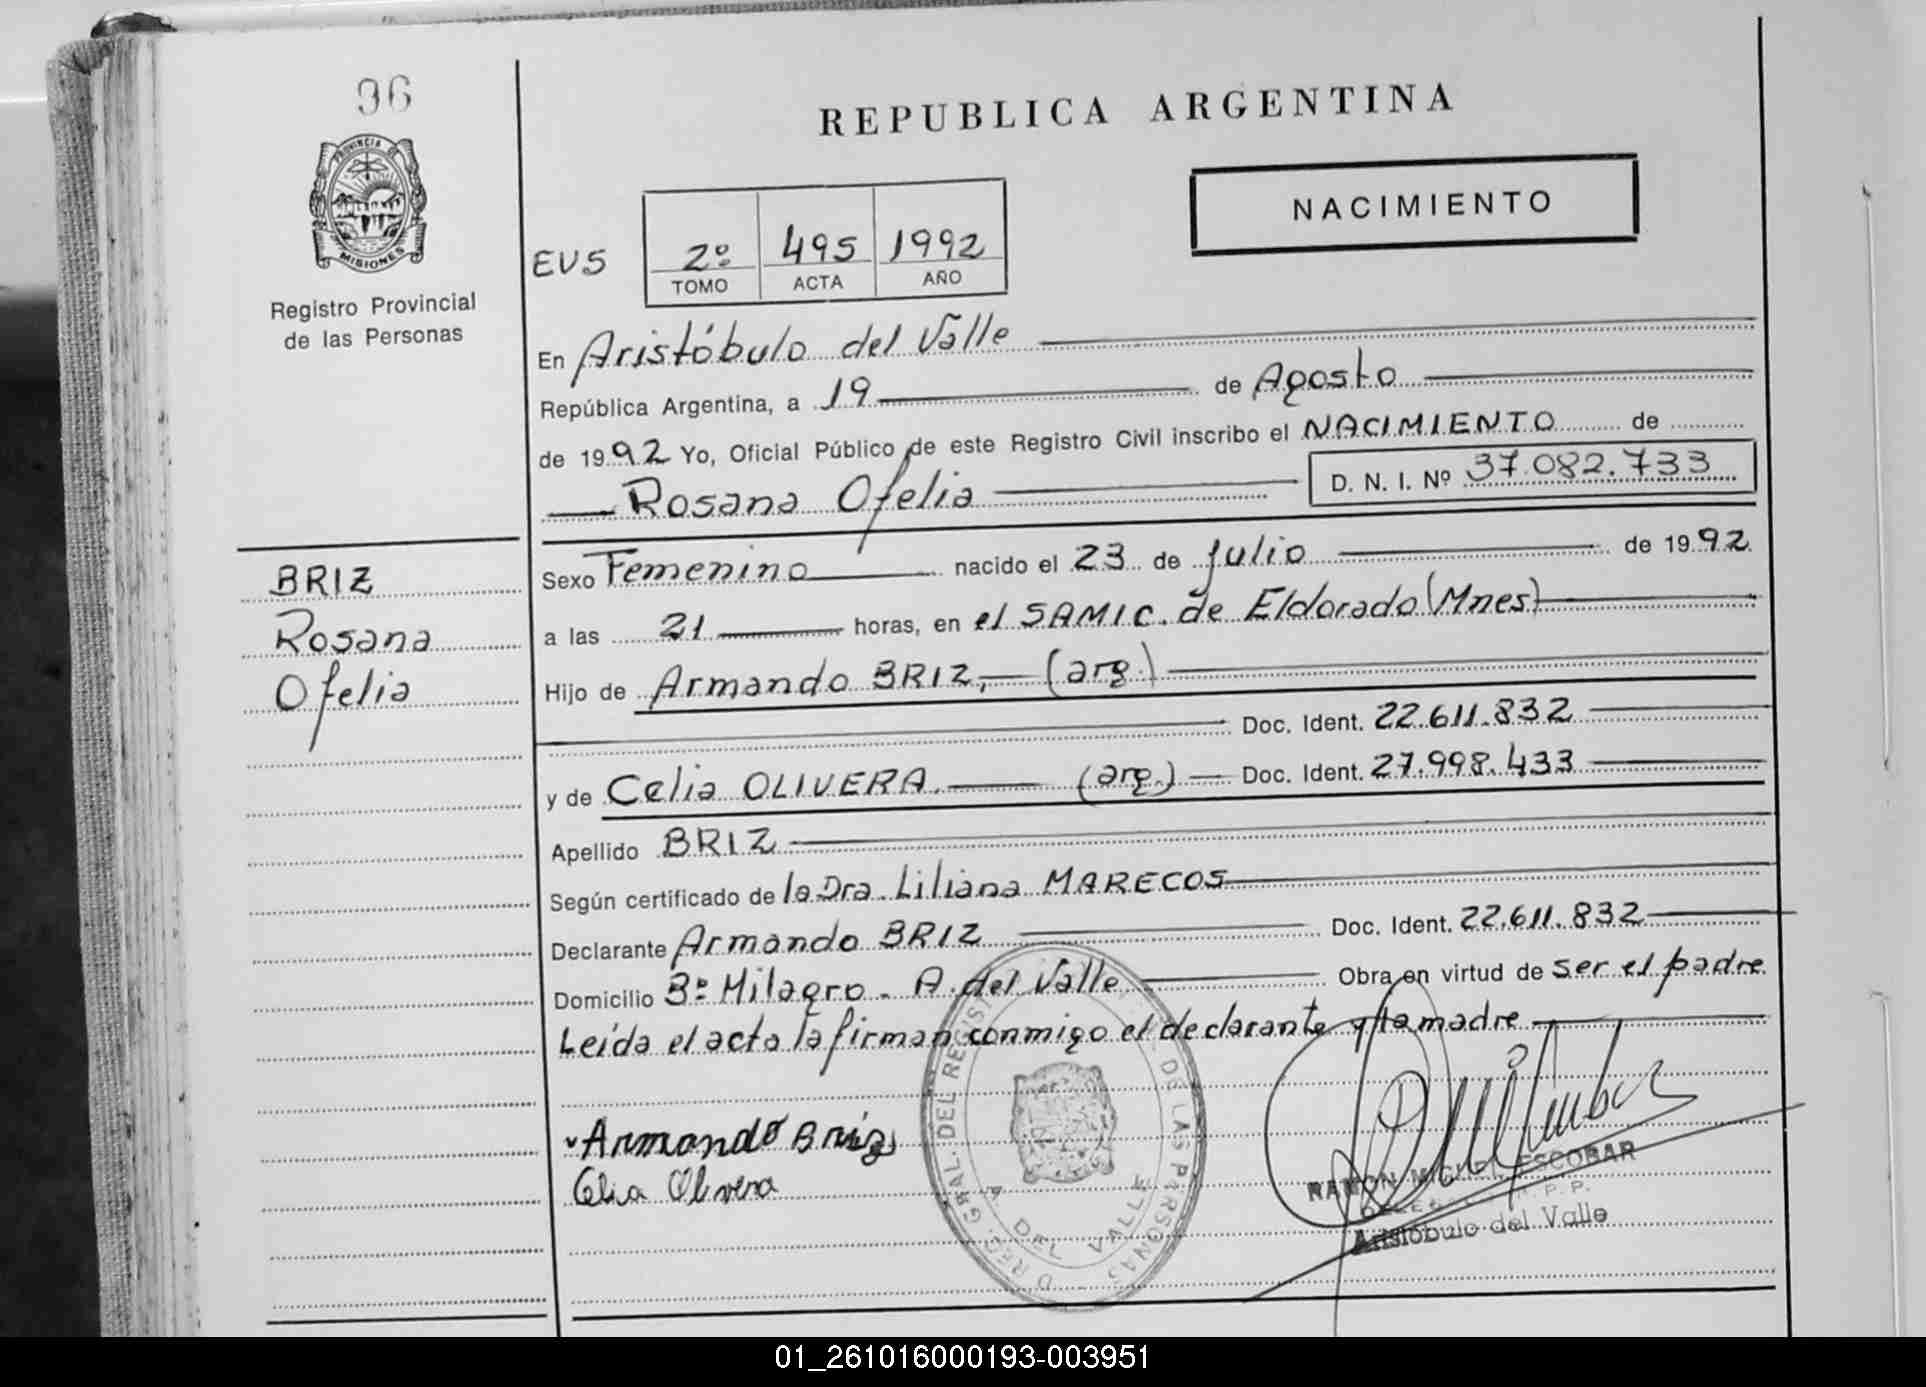 96
REPUBLICA ARGENTINA
PROVINCIA DE
MISIONES
Registro Provincial
de las Personas
NACIMIENTO
EV5
2º 495 1992
TOMO ACTA AÑO
En Aristóbulo del Valle
República Argentina, a 19 de Agosto
de 1992 Yo, Oficial Público de este Registro Civil inscribo el NACIMIENTO de
Rosana Ofelia D. N. I. Nº 37.082.733
BRIZ
Rosana
Ofelia
Sexo Femenino nacido el 23 de Julio de 1992
a las 21 horas, en el SAMIC. de Eldorado (Mnes)
Hijo de Armando BRIZ, (arg.)
Doc. Ident. 22.611.832
y de Celia OLIVERA. (arg.) Doc. Ident. 27.998.433
Apellido BRIZ
Según certificado de la Dra. Liliana MARECOS
Declarante Armando BRIZ Doc. Ident. 22.611.832
Domicilio Bº Milagro - A. del Valle Obra en virtud de ser el padre
Leída el acta la firman conmigo el declarante y la madre
Armando Briz
Celia Olivera
GRAL. DEL REGIST DE LAS PERSONAS
A DEL VALLE
RAMON MIGUEL ESCOBAR
Aristóbulo del Valle
01_261016000193-003951